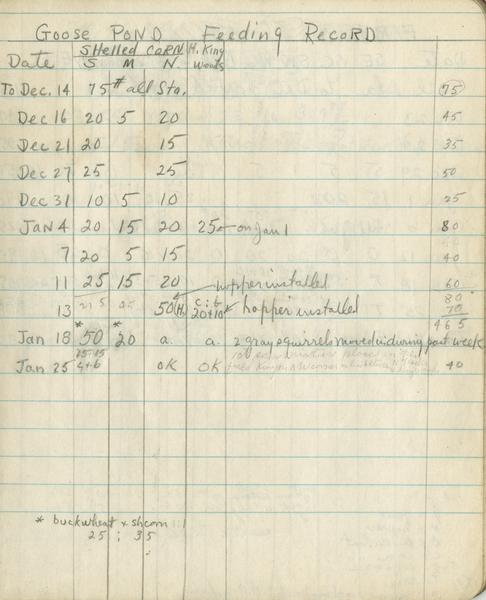 Goose Pond Feeding Record
Shelled Corn H. King
Date S M N. Woods
To Dec. 14 75 # all Sta. 75
Dec 16 20 5 20 45
Dec 21 20 15 35
Dec 27 25 25 50
Dec 31 10 5 10 25
Jan 4 20 15 20 25 on Jan 1 80
7 20 5 15 40
11 25 15 20 hopper installed 60
80
13 50 (H) c : b 20 + 10 hopper installed 70
465
Jan 18 *50 *20 a. a. 2 gray squirrels moved in during past week
Jan 25 OK OK 40
* buckwheat x shcorn 1:1
25 : 35